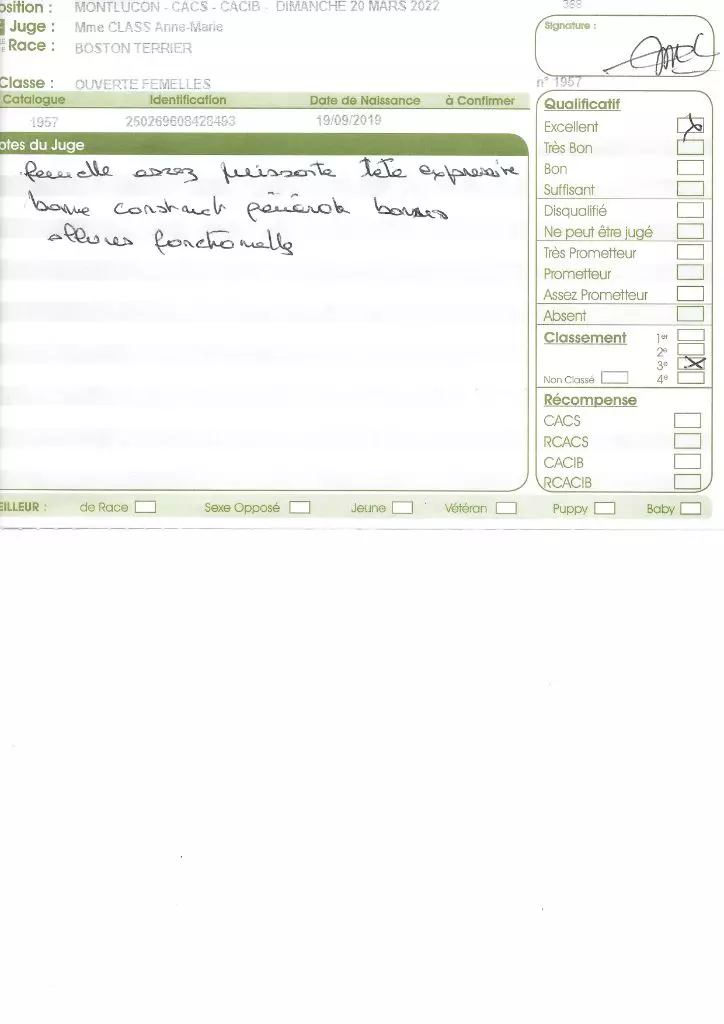 osition : MONTLUCON - CACS - CACIB - DIMANCHE 20 MARS 2022
Juge : Mme CLASS Anne-Marie
Race : BOSTON TERRIER
Classe : OUVERTE FEMELLES
n° 1957
Signature :
Catalogue Identification Date de Naissance à Confirmer
1957 250269608428483 19/09/2019
otes du Juge
femelle assez puissante tête expressive
bonne construct générale bonnes
allures fonctionnelles
Qualificatif
Excellent
Très Bon
Bon
Suffisant
Disqualifié
Ne peut être jugé
Très Prometteur
Prometteur
Assez Prometteur
Absent
Classement 1er
2e
3e
Non Classé 4e
Récompense
CACS
RCACS
CACIB
RCACIB
EILLEUR : de Race Sexe Opposé Jeune Vétéran Puppy Baby